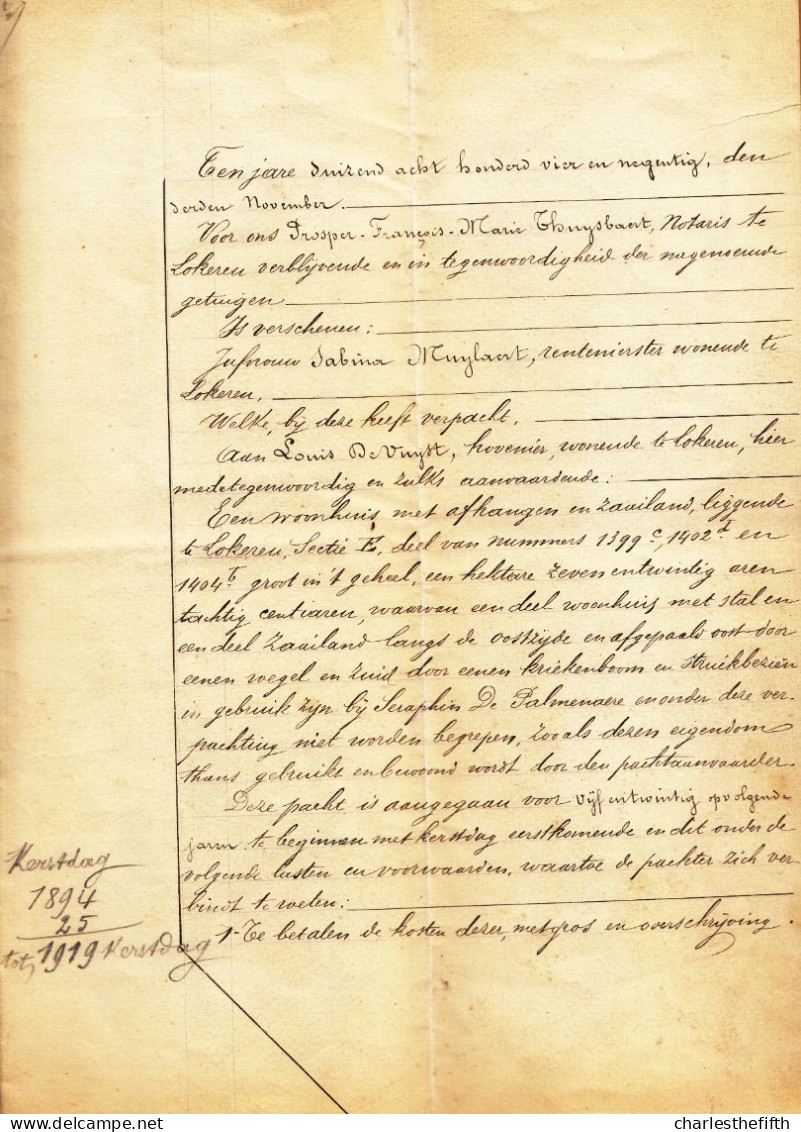 Ten jare duizend acht honderd vier en negentig, den
derden November.
Voor ons Prosper-François-Marie Thuysbaert, Notaris te
Lokeren verblijvende en in tegenwoordigheid der nagenoemde
getuigen
Is verschenen:
Jufvrouw Sabina Muylaert, rentenierster wonende te
Lokeren,
Welke, bij deze heeft verpacht,
Aan Louis De Vuyst, hovenier, wonende te Lokeren, hier
medetegenwoordig en zulks aanvaardende:
Een woonhuis met afhangen en zaailand, liggende
te Lokeren, Sectie E, deel van nummers 1399c, 1402d en
1404b groot in 't geheel, een hektare zeven entwintig aren
tachtig centiaren, waarvan een deel woonhuis met stal en
een deel zaailand langs de oostzijde en afgepaald oost door
eenen wegel en zuid door eenen kriekenboom en struikbeziën
in gebruik zijn bij Seraphin De Palmenaere en onder deze ver-
pachting niet worden begrepen, zooals dezen eigendom
thans gebruikt en bewoond wordt door den pachtaanvaarder.
Deze pacht is aangegaan voor vijf entwintig opvolgende
jaren te beginnen met kerstdag eerstkomende en dit onder de
volgende lasten en voorwaarden, waartoe de pachter zich ver-
bindt te weten:
1- Te betalen de kosten dezer, met gros en overschrijving.
Kerstdag
1894
25
tot, 1919 Kerstdag
charlesthefifth